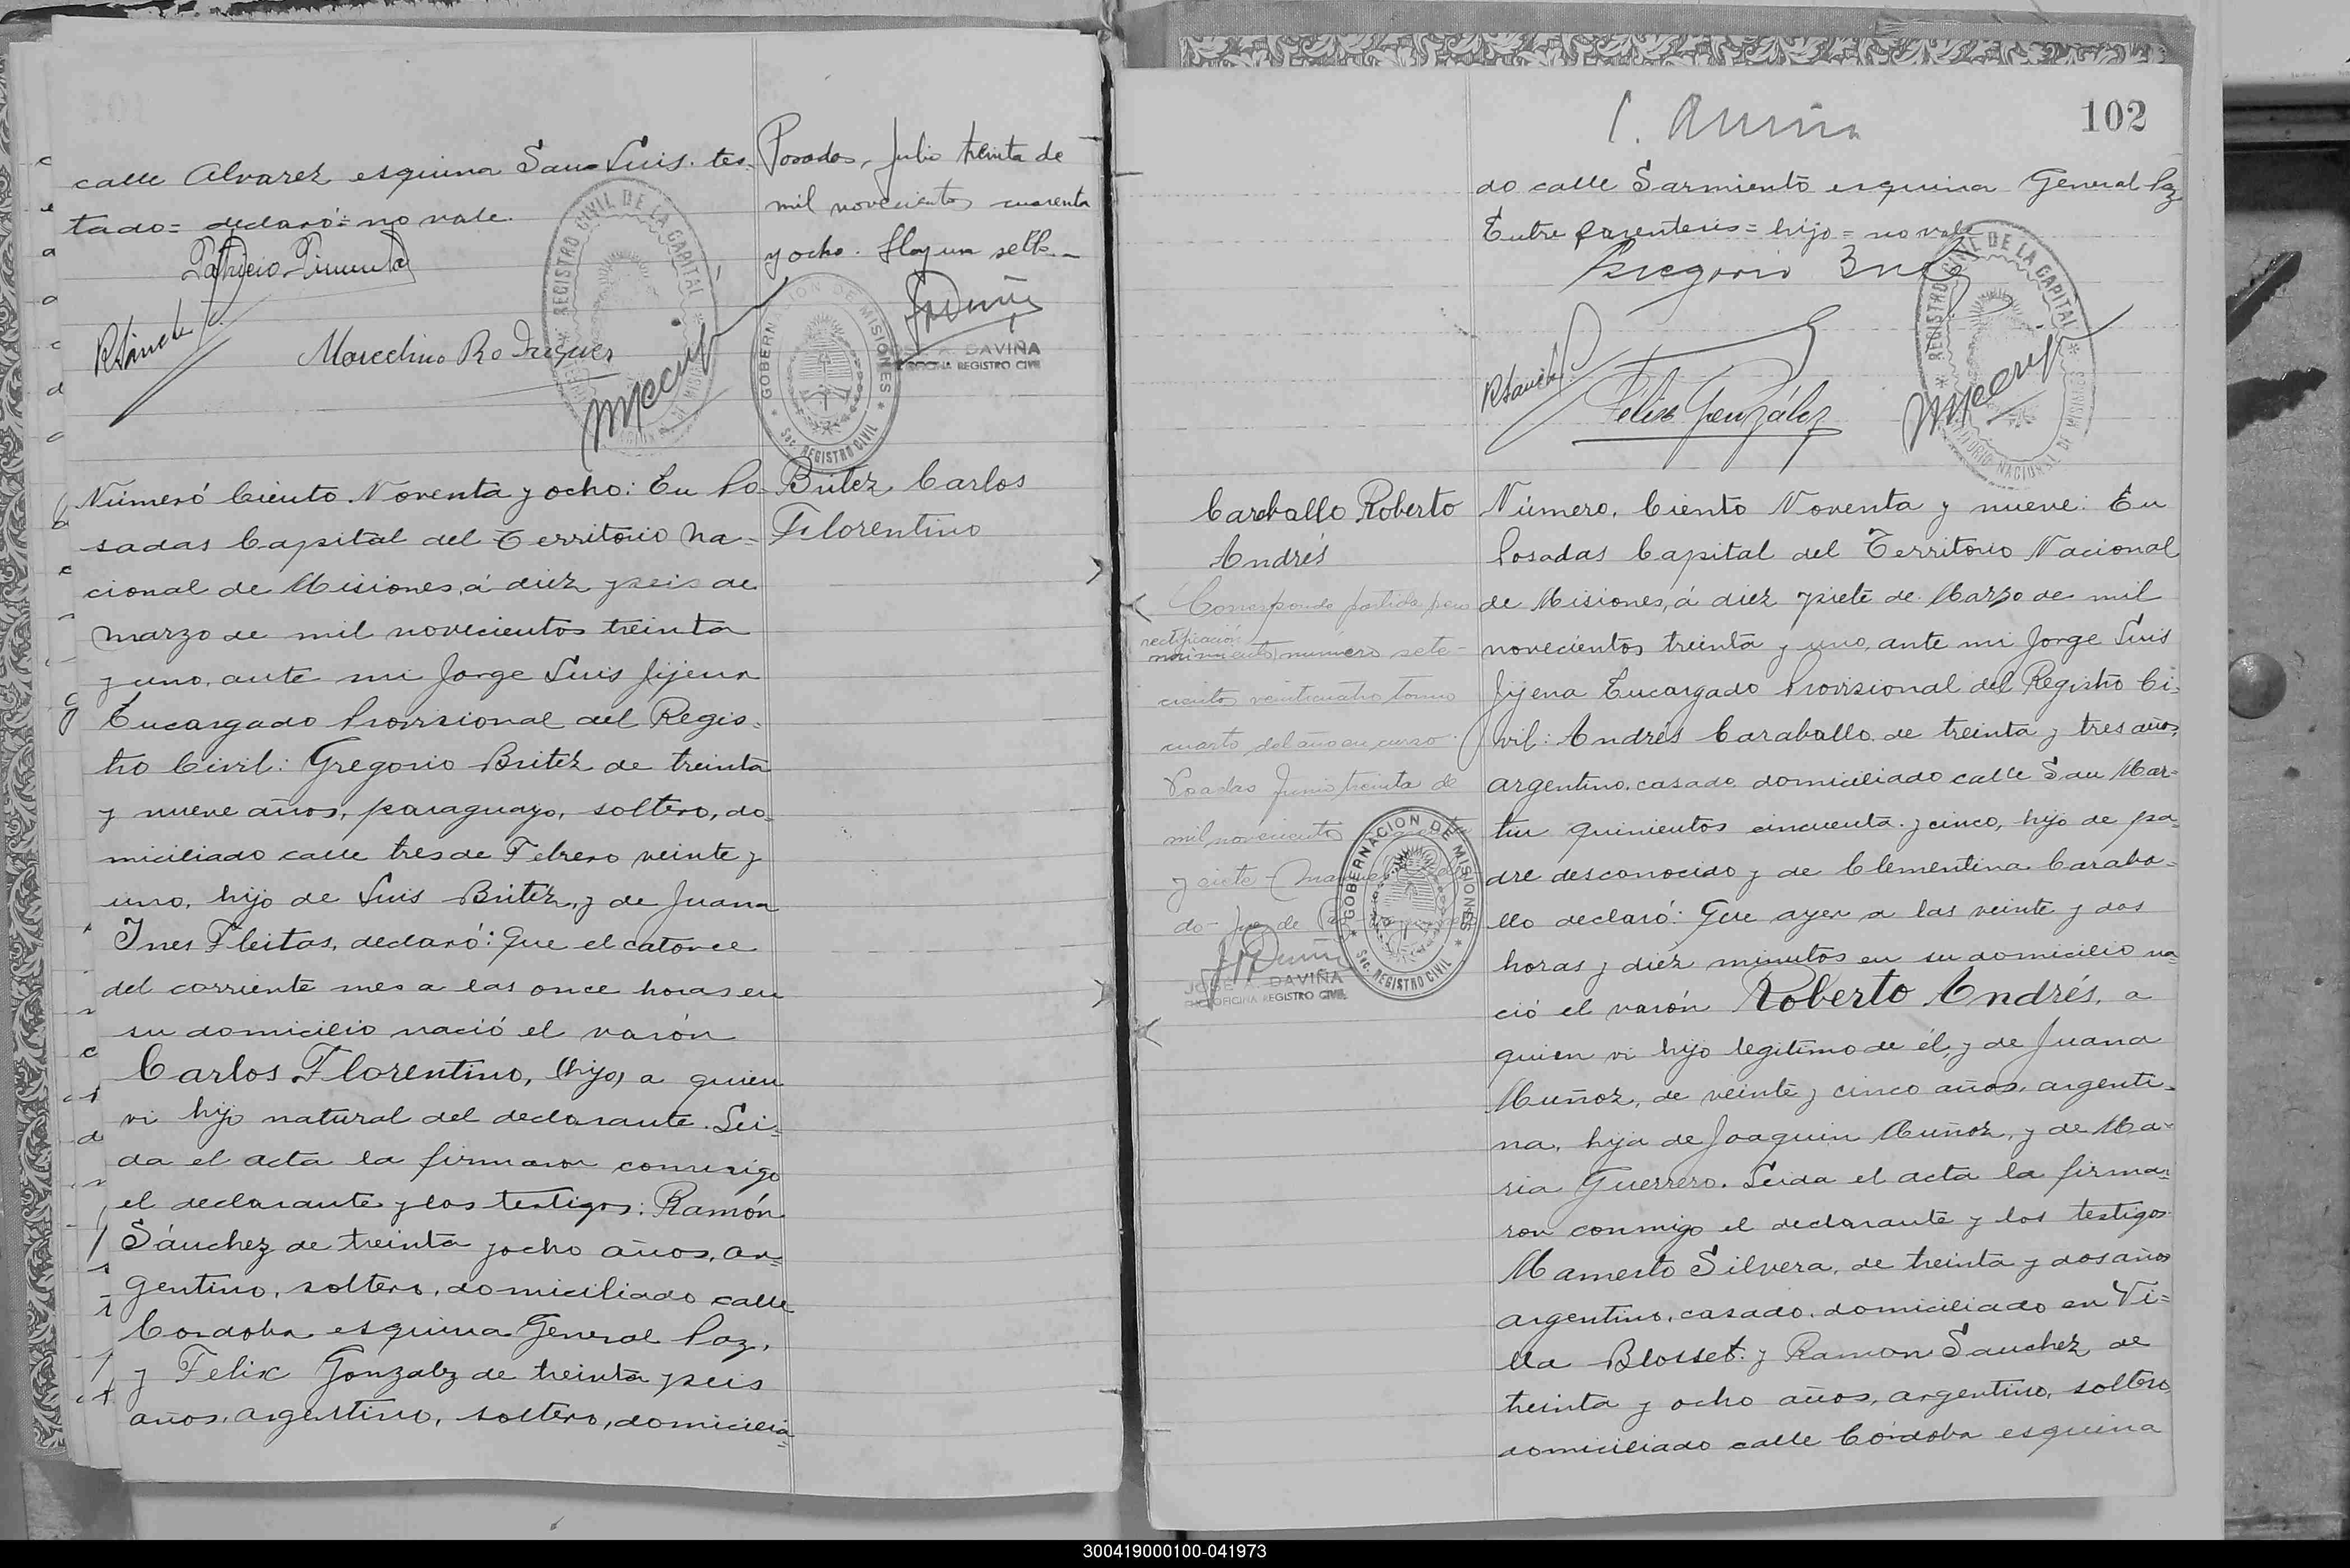 calle Alvarez esquina San Luis. tes-
tado= declaró= no vale.
Patricio Pimenta
RSánchez
Marcelino Rodriguez
REGISTRO CIVIL DE LA CAPITAL
Posadas, Julio treinta de
mil novecientos cuarenta
y ocho. Hay un sello.-
GOBERNACION DE MISIONES
Sec. REGISTRO CIVIL
A. DAVIÑA
OFICINA REGISTRO CIVIL
Número Ciento Noventa y ocho: En Po-
sadas Capital del Territorio Na-
cional de Misiones, á diez y seis de
marzo de mil novecientos treinta
y uno, ante mi Jorge Luis Jijena
Encargado Provisional del Regis-
tro Civil: Gregorio Britez de treinta
y nueve años, paraguayo, soltero, do-
miciliado calle tres de Febrero veinte y
uno, hijo de Luis Britez, y de Juana
Ines Fleitas, declaró: Que el catorce
del corriente mes a las once horas en
su domicilio nació el varón
Carlos Florentino, (hijo) a quien
vi hijo natural del declarante. Lei-
da el acta la firmaron conmigo
el declarante y los testigos: Ramón
Sánchez de treinta y ocho años, ar-
gentino, soltero, domiciliado calle
Cordoba esquina General Paz,
y Felix Gonzalez de treinta y seis
años, argentino, soltero, domicilia-
Britez Carlos
Florentino
102
do calle Sarmiento esquina General Paz
Entre parentesis = hijo = no vale
Gregorio
RSanchez
Felix González
REGISTRO CIVIL DE LA CAPITAL
TERRITORIO NACIONAL DE MISIONES
Caraballo Roberto
Andrés
Corresponde partida por
rectificación
nacimiento número sete-
ciento veinticuatro tomo
cuarto, del año en curso.
Posadas Junio treinta de
mil novecientos
y siete
GOBERNACION DE MISIONES
Sec. REGISTRO CIVIL
JOSE A. DAVIÑA
OFICINA REGISTRO CIVIL
Número, Ciento Noventa y nueve: En
Posadas Capital del Territorio Nacional
de Misiones, á diez y siete de Marzo de mil
novecientos treinta y uno, ante mi Jorge Luis
Jijena Encargado Provisional del Registro Ci-
vil: Andrés Caraballo de treinta y tres años,
argentino, casado domiciliado calle San Mar-
tin quinientos cincuenta y cinco, hijo de pa-
dre desconocido y de Clementina Caraba-
llo declaró: Que ayer a las veinte y dos
horas y diez minutos en su domicilio na-
ció el varón Roberto Andrés, a
quien vi hijo legitimo de él, y de Juana
Muñoz, de veinte y cinco años, argenti-
na, hija de Joaquin Muñoz, y de Ma-
ria Guerrero. Leida el acta la firma-
ron conmigo el declarante y los testigos
Mamerto Silvera, de treinta y dos años
argentino, casado, domiciliado en Vi-
lla Blosset. y Ramon Sanchez de
treinta y ocho años, argentino, soltero,
domiciliado calle Córdoba esquina
300419000100-041973